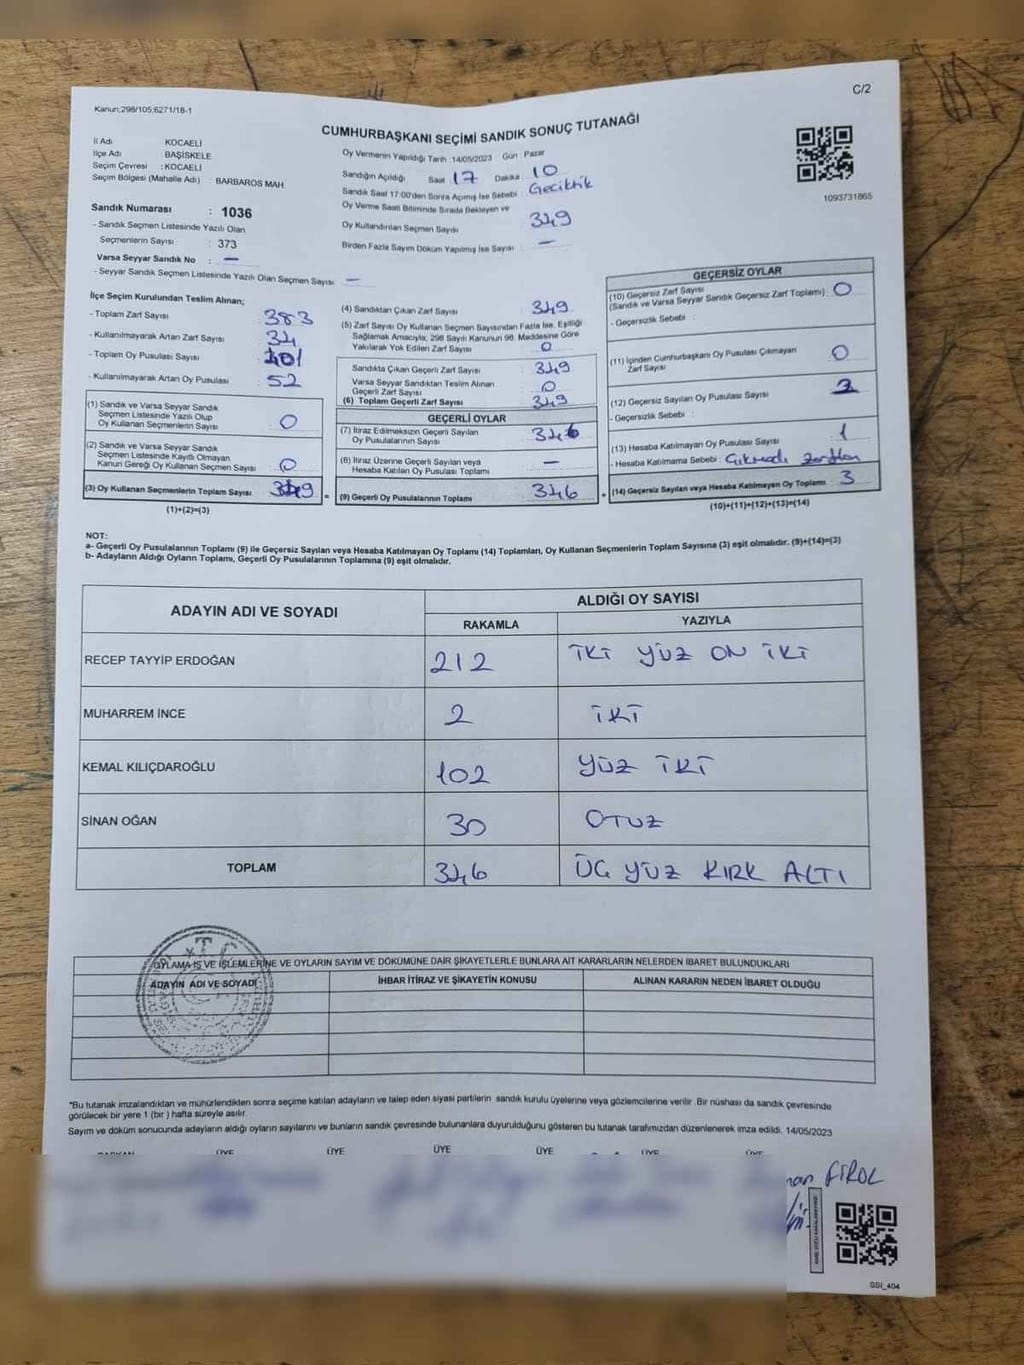 C/2
Kanun;298/105;6271/18-1
CUMHURBAŞKANI SEÇİMİ SANDIK SONUÇ TUTANAĞI
İl Adı KOCAELİ
İlçe Adı BAŞİSKELE
Seçim Çevresi : KOCAELİ
Seçim Bölgesi (Mahalle Adı) : BARBAROS MAH.
Sandık Numarası : 1036
- Sandık Seçmen Listesinde Yazılı Olan
Seçmenlerin Sayısı : 373
Varsa Seyyar Sandık No : —
- Seyyar Sandık Seçmen Listesinde Yazılı Olan Seçmen Sayısı : —
Oy Vermenin Yapıldığı Tarih :14/05/2023 Gün : Pazar
Sandığın Açıldığı Saat 17 Dakika 10
Sandık Saat 17:00'den Sonra Açımış İse Sebebi : Geciktik
Oy Verme Saati Bitiminde Sırada Bekleyen ve
Oy Kullandırılan Seçmen Sayısı 349
Birden Fazla Sayım Döküm Yapılmış İse Sayısı : —
1093731865
İlçe Seçim Kurulundan Teslim Alınan;
- Toplam Zarf Sayısı 383
- Kullanılmayarak Artan Zarf Sayısı 34
- Toplam Oy Pusulası Sayısı 401
- Kullanılmayarak Artan Oy Pusulası 52
(1) Sandık ve Varsa Seyyar Sandık
Seçmen Listesinde Yazılı Olup
Oy Kullanan Seçmenlerin Sayısı 0
(2) Sandık ve Varsa Seyyar Sandık
Seçmen Listesinde Kayıtlı Olmayan
Kanun Gereği Oy Kullanan Seçmen Sayısı 0
(3) Oy Kullanan Seçmenlerin Toplam Sayısı 349 =
(1)+(2)=(3)
(4) Sandıktan Çıkan Zarf Sayısı 349
(5) Zarf Sayısı Oy Kullanan Seçmen Sayısından Fazla İse, Eşitliği
Sağlamak Amacıyla; 298 Sayılı Kanunun 98. Maddesine Göre
Yakılarak Yok Edilen Zarf Sayısı 0
Sandıkta Çıkan Geçerli Zarf Sayısı 349
Varsa Seyyar Sandıktan Teslim Alınan
Geçerli Zarf Sayısı 0
(6) Toplam Geçerli Zarf Sayısı 349
GEÇERLİ OYLAR
(7) İtiraz Edilmeksizin Geçerli Sayılan
Oy Pusulalarının Sayısı 346
(8) İtiraz Üzerine Geçerli Sayılan veya
Hesaba Katılan Oy Pusulası Toplamı —
(9) Geçerli Oy Pusulalarının Toplamı 346 +
GEÇERSİZ OYLAR
(10) Geçersiz Zarf Sayısı
(Sandık ve Varsa Seyyar Sandık Geçersiz Zarf Toplamı) 0
- Geçersizlik Sebebi :
(11) İçinden Cumhurbaşkanı Oy Pusulası Çıkmayan
Zarf Sayısı 0
(12) Geçersiz Sayılan Oy Pusulası Sayısı
- Geçersizlik Sebebi :
(13) Hesaba Katılmayan Oy Pusulası Sayısı 1
- Hesaba Katılmama Sebebi : Çıkmadı zarftan
(14) Geçersiz Sayılan veya Hesaba Katılmayan Oy Toplamı : 3
(10)+(11)+(12)+(13)=(14)
NOT:
a- Geçerli Oy Pusulalarının Toplamı (9) ile Geçersiz Sayılan veya Hesaba Katılmayan Oy Toplamı (14) Toplamları, Oy Kullanan Seçmenlerin Toplam Sayısına (3) eşit olmalıdır. (9)+(14)=(3)
b- Adayların Aldığı Oyların Toplamı, Geçerli Oy Pusulalarının Toplamına (9) eşit olmalıdır.
ADAYIN ADI VE SOYADI ALDIĞI OY SAYISI
RAKAMLA YAZIYLA
RECEP TAYYİP ERDOĞAN 212 İKİ YÜZ ON İKİ
MUHARREM İNCE 2 İKİ
KEMAL KILIÇDAROĞLU 102 YÜZ İKİ
SİNAN OĞAN 30 OTUZ
TOPLAM 346 ÜÇ YÜZ KIRK ALTI
OYLAMA İŞ VE İŞLEMLERİNE VE OYLARIN SAYIM VE DÖKÜMÜNE DAİR ŞİKAYETLERLE BUNLARA AİT KARARLARIN NELERDEN İBARET BULUNDUKLARI
ADAYIN ADI VE SOYADI İHBAR İTİRAZ VE ŞİKAYETİN KONUSU ALINAN KARARIN NEDEN İBARET OLDUĞU
T.C.
*Bu tutanak imzalandıktan ve mühürlendikten sonra seçime katılan adayların ve talep eden siyasi partilerin sandık kurulu üyelerine veya gözlemcilerine verilir. Bir nüshası da sandık çevresinde
görülecek bir yere 1 (bir ) hafta süreyle asılır.
Sayım ve döküm sonucunda adayların aldığı oyların sayılarını ve bunların sandık çevresinde bulunanlara duyurulduğunu gösteren bu tutanak tarafımızdan düzenlenerek imza edildi. 14/05/2023
BAŞKAN ÜYE ÜYE ÜYE ÜYE ÜYE ÜYE
GGI_404